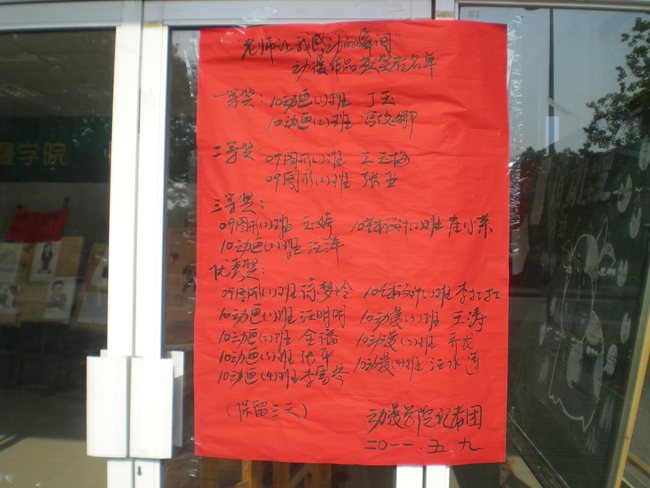 漫学院
"老师让我感动的瞬间"
动漫作品获奖者名单
一等奖：10动画(1)班 丁玉
10动画(2)班 宫俊娜
二等奖 09图形(2)班 王玉梅
09图形(2)班 张亚
三等奖：
09图形(2)班 王婷 10艺术设计(2)班 崔小荣
10动画(2)班 汪洋
优秀奖：
09图形(1)班 徐梦玲 10艺术设计(1)班 李红红
10动画(1)班 汪明明 10动漫(3)班 王涛
10动画(2)班 金璐 10动漫(3)班 亓龙
10动画(3)班 张华 10动漫(4)班 汪永莲
10动画(4)班 李雪芹
(保留三天) 动漫学院记者团
二〇一一.五.九